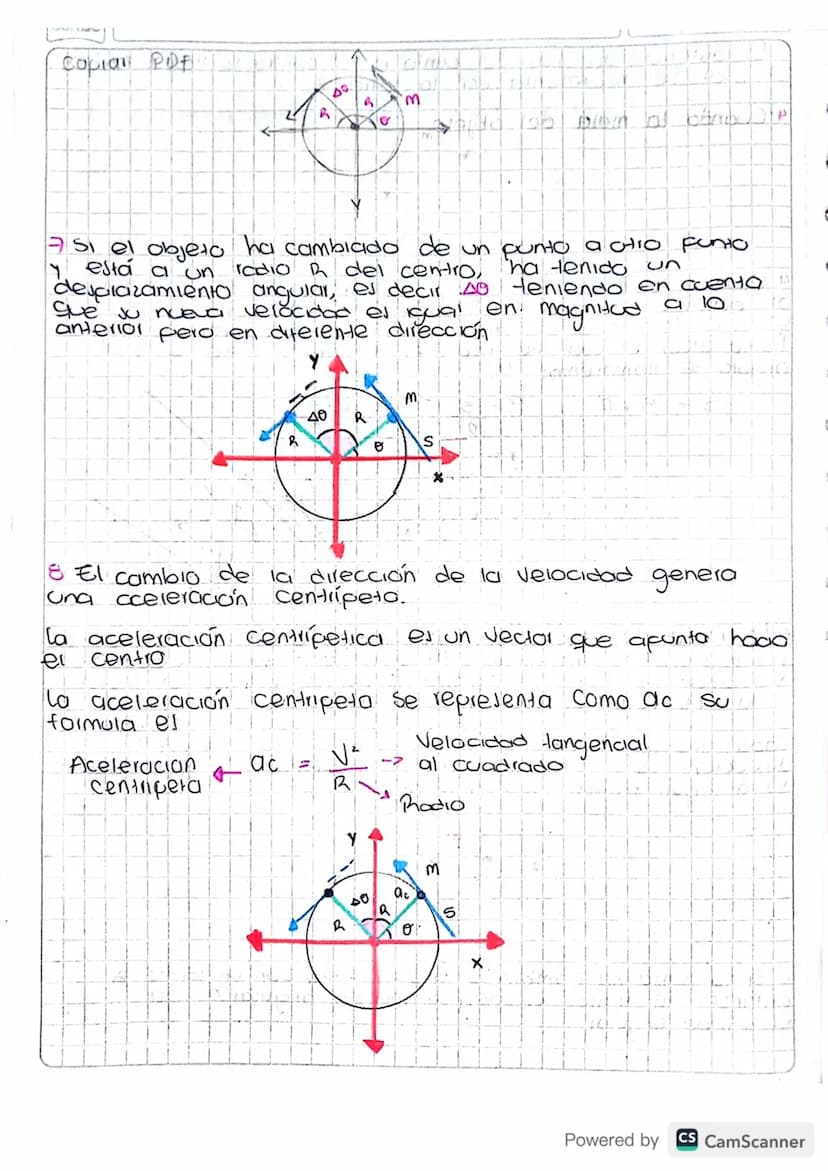 Copiar PDF
Δθ
R
R
θ
m
Y
7 Si el objeto ha cambiado de un punto a otro punto
y está a un radio R del centro, ha tenido un
desplazamiento angular, es decir Δθ teniendo en cuenta
que su nueva velocidad es igual en magnitud a lo
anterior pero en diferente dirección
Y
m
Δθ
R
R
θ
S
x
8 El cambio de la dirección de la velocidad genera
una aceleración centrípeta.
La aceleración centrípetica es un vector que apunta hacia
el centro
La aceleración centripeta se representa como ac su
formula es
Aceleracion
centripeta
ac = V²
R
Velocidad tangencial
al cuadrado
Radio
Y
m
Δθ
ac
R
R
θ
S
x
Powered by CS CamScanner